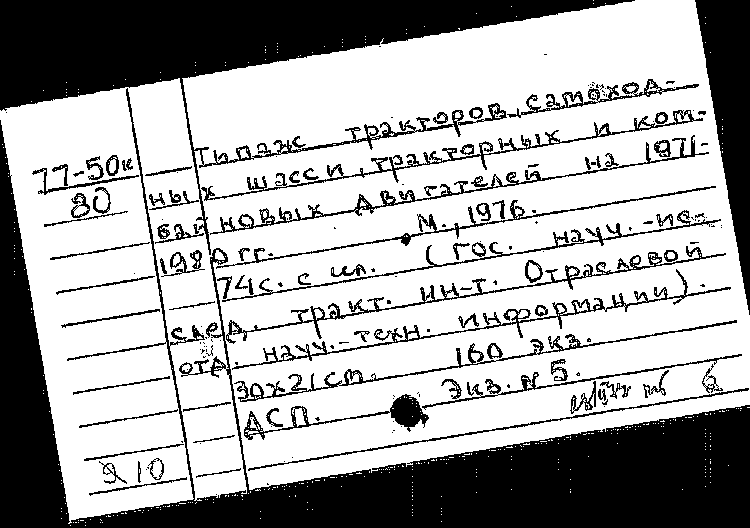 77-50к
80
Типаж тракторов, самоход-
ных шасси, тракторных и ком-
байновых двигателей на 1971-
1980 гг. М., 1976.
74с. с ил. (Гос. науч.-ис-
след. тракт. ин-т. Отраслевой
отд. науч.-техн. информации).
30х21см. 160 экз.
ДСП. Экз. N 5.
б
210